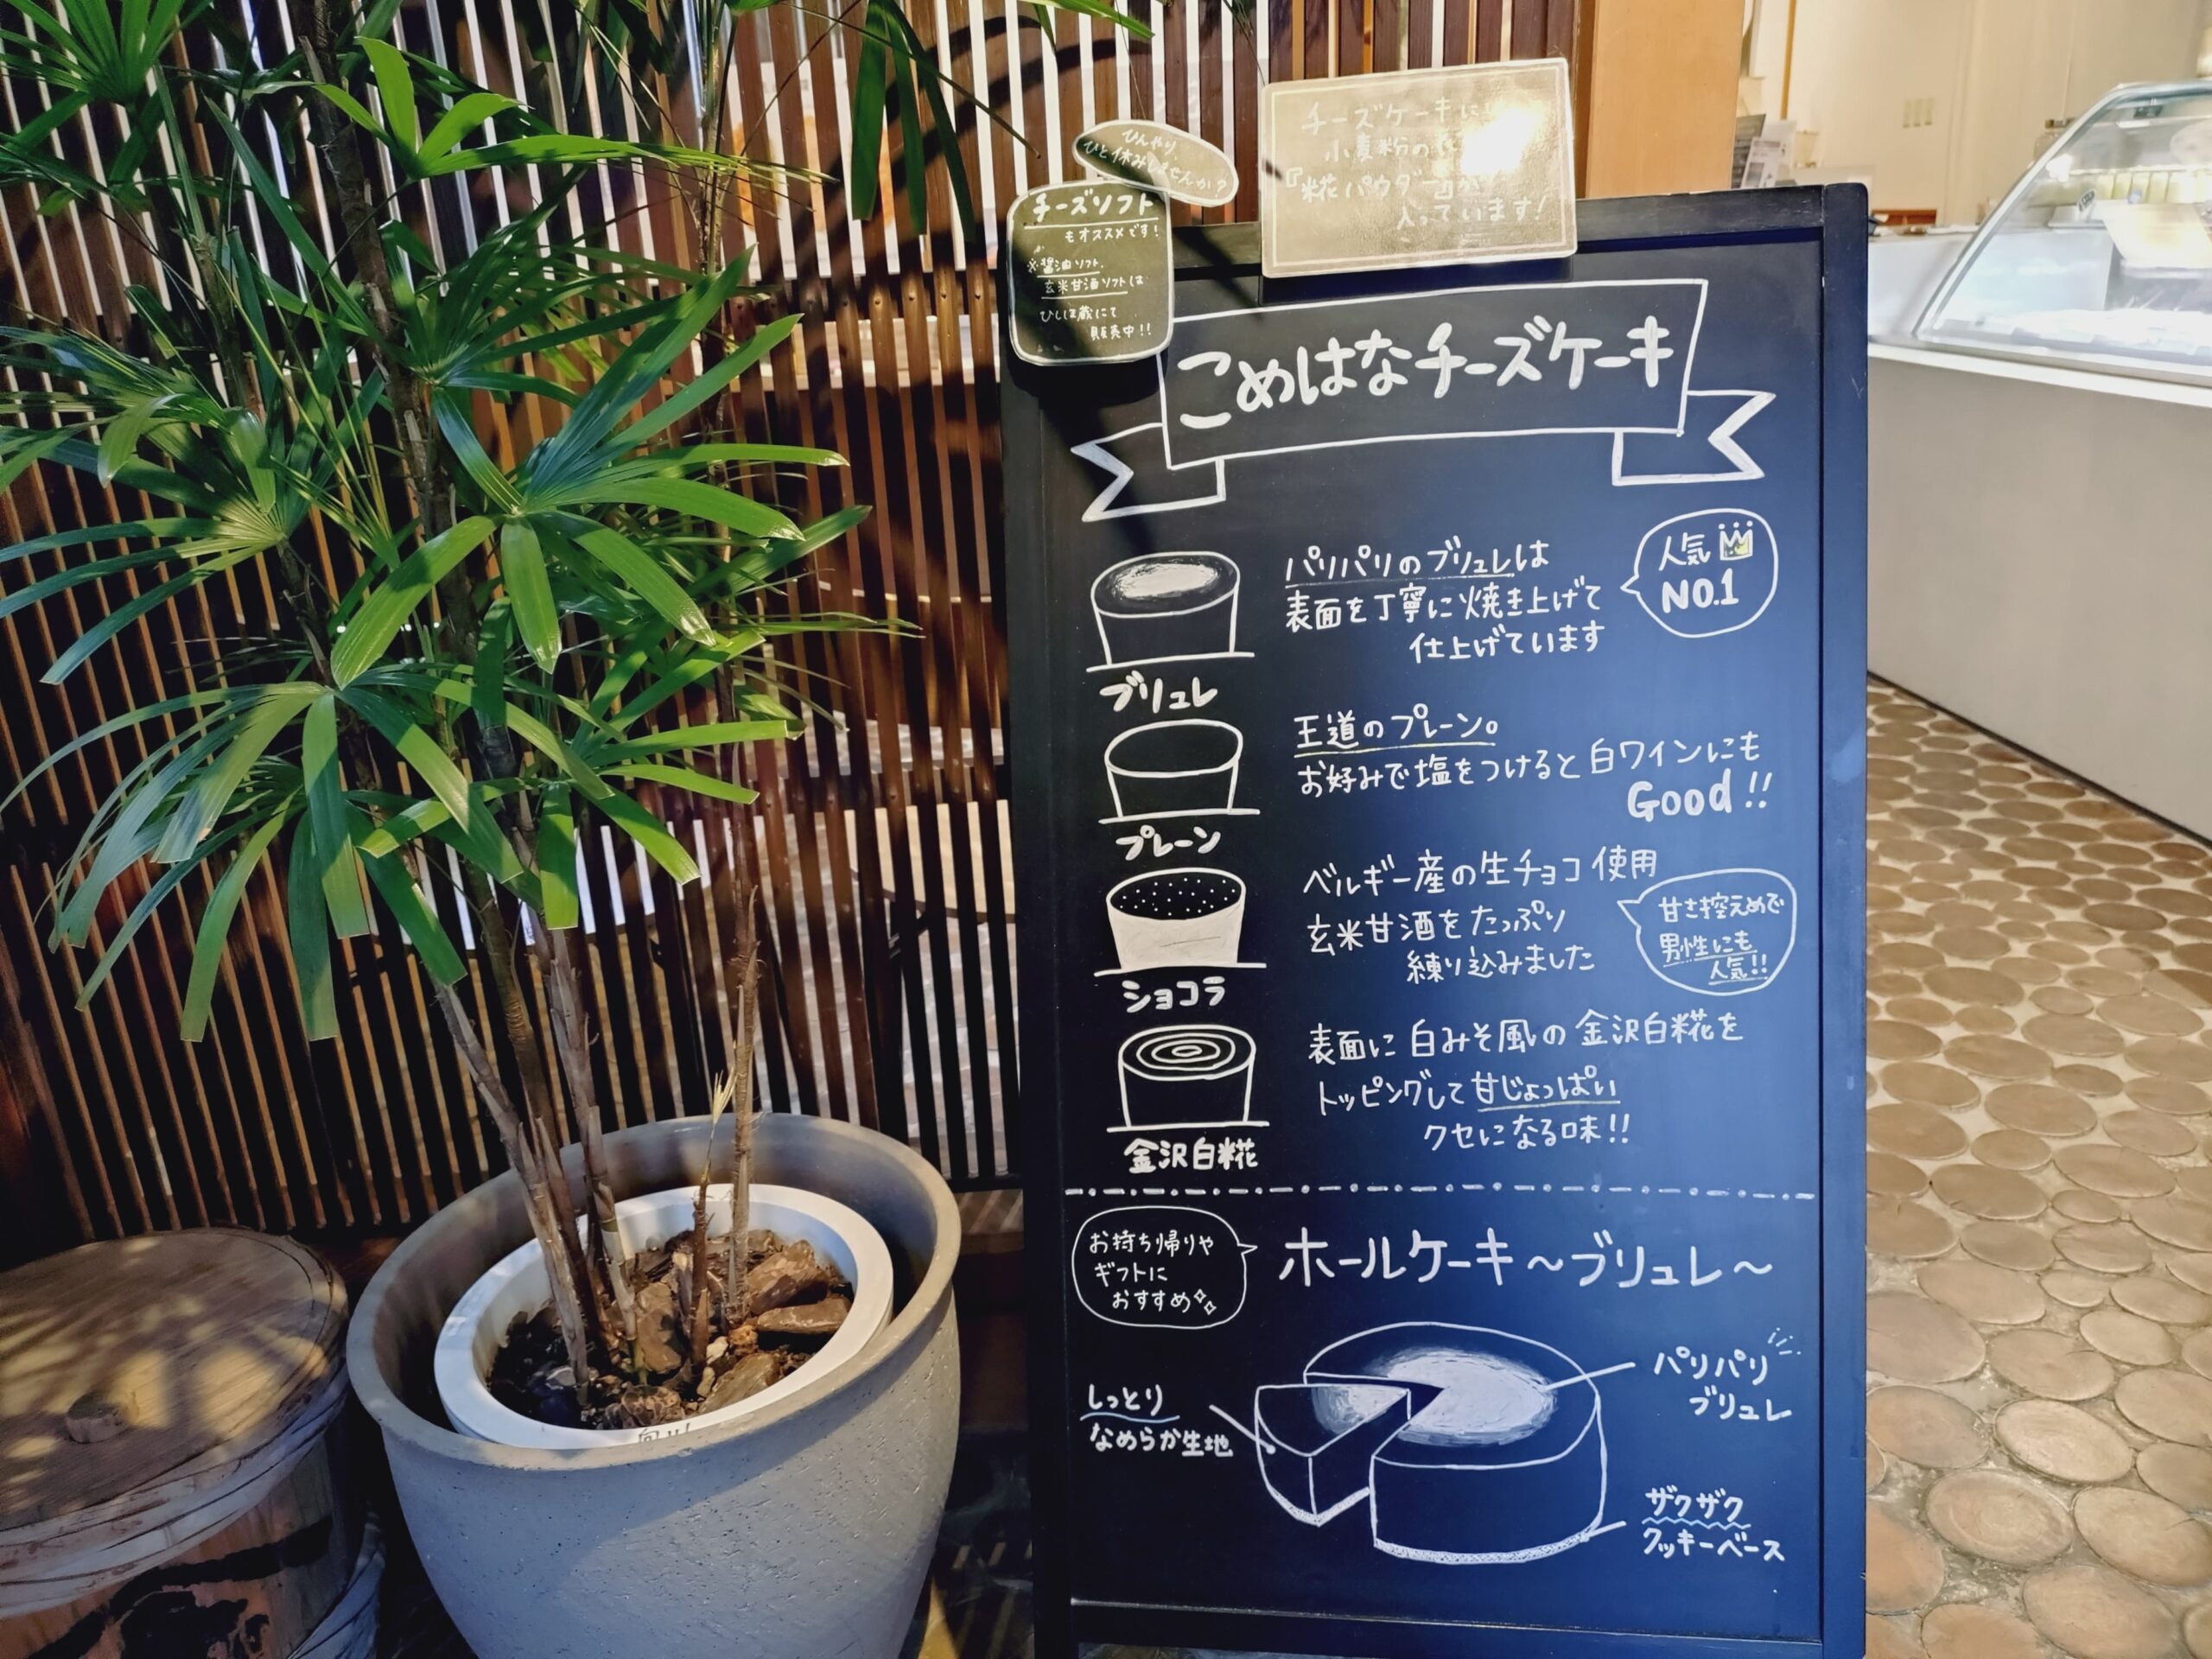 ひんやり
ひと休みしませんか？
チーズソフト
もオススメです!
※醤油ソフト、
玄米甘酒ソフトは
ひしほ蔵にて
販売中!!
チーズケーキに
小麦粉の
『糀パウダー』が
入っています!
こめはなチーズケーキ
パリパリのブリュレは
表面を丁寧に焼き上げて
仕上げています
人気
NO.1
ブリュレ
王道のプレーン。
お好みで塩をつけると白ワインにも
Good!!
プレーン
ベルギー産の生チョコ使用
玄米甘酒をたっぷり
練り込みました
甘さ控えめで
男性にも
人気!!
ショコラ
表面に白みそ風の金沢白糀を
トッピングして甘じょっぱい
クセになる味!!
金沢白糀
お持ち帰りや
ギフトに
おすすめ
ホールケーキ～ブリュレ～
パリパリ
ブリュレ
しっとり
なめらか生地
ザクザク
クッキーベース